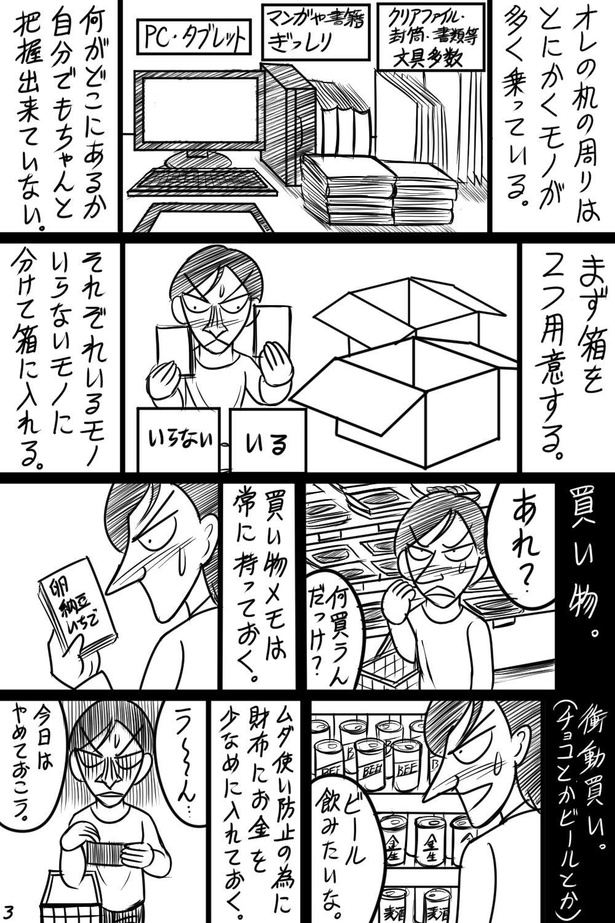 オレの机の周りは
とにかくモノが
多く乗っている。
クリアファイル・
封筒・書類等
文具多数
マンガや書籍
ぎっしり
PC・タブレット
何がどこにあるか
自分でもちゃんと
把握出来ていない。
まず箱を
2つ用意する。
いらない
いる
それぞれいるモノ
いらないモノに
分けて箱に入れる。
買い物。
あれ?
何買うん
だっけ?
買い物メモは
常に持っておく。
卵
納豆
いちご
衝動買い。
(チョコとかビールとか)
BEE
BEE
BEE
金生
金生
麦酒
麦酒
ビール
飲みたいな。
ムダ使い防止の為に
財布にお金を
少なめに入れておく。
う〜〜ん…
今日は
やめておこう。
3